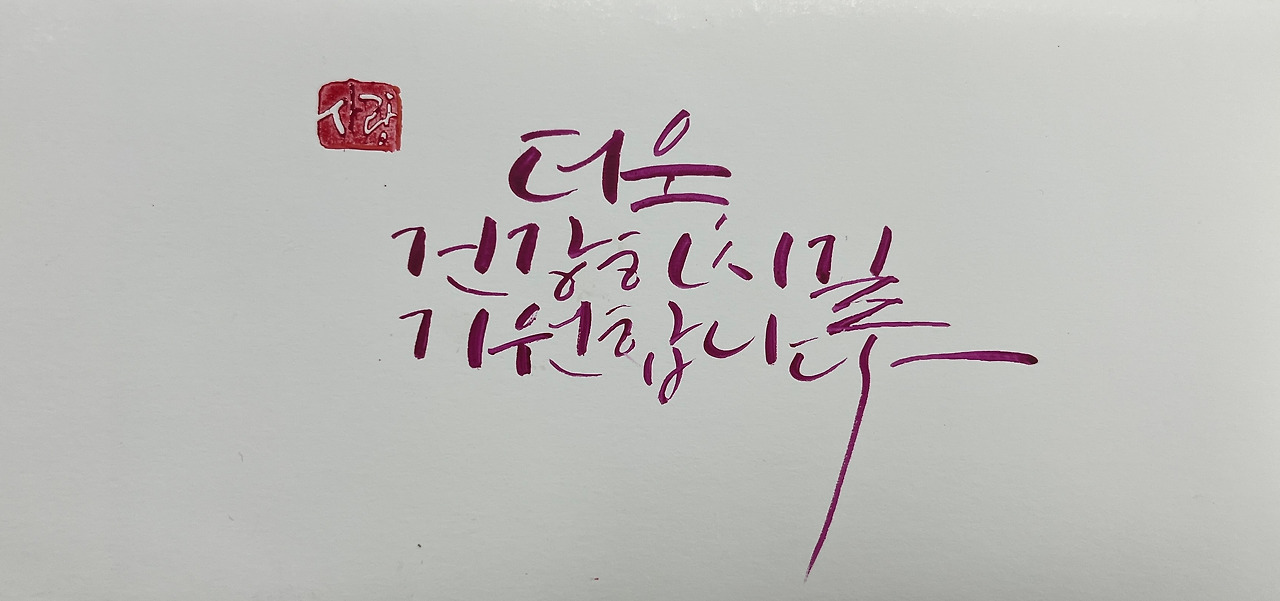 사랑
더욱
건강하시길
기원합니다